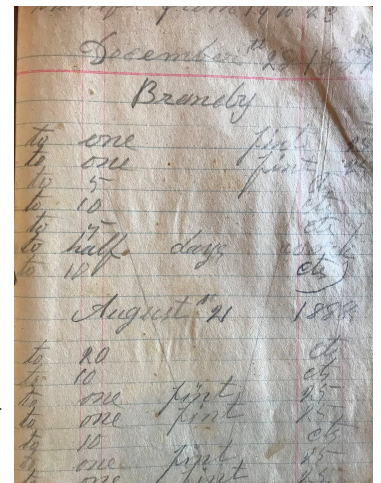 December 28th 18
Brandy
to one pint 25
to one pint 25
to 5 cts
to 10 cts
to 5 cts
to half days work
to 10 cts
August " 21 1888
to 20 cts
to 10 cts
to one pint 25
to one pint 25
to 10 cts
to one pint 25
to one pint 25